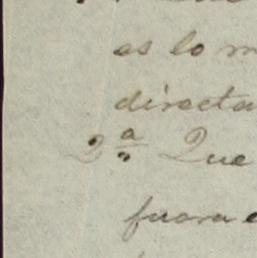 es lo m
directa
2ª Que
fuera e